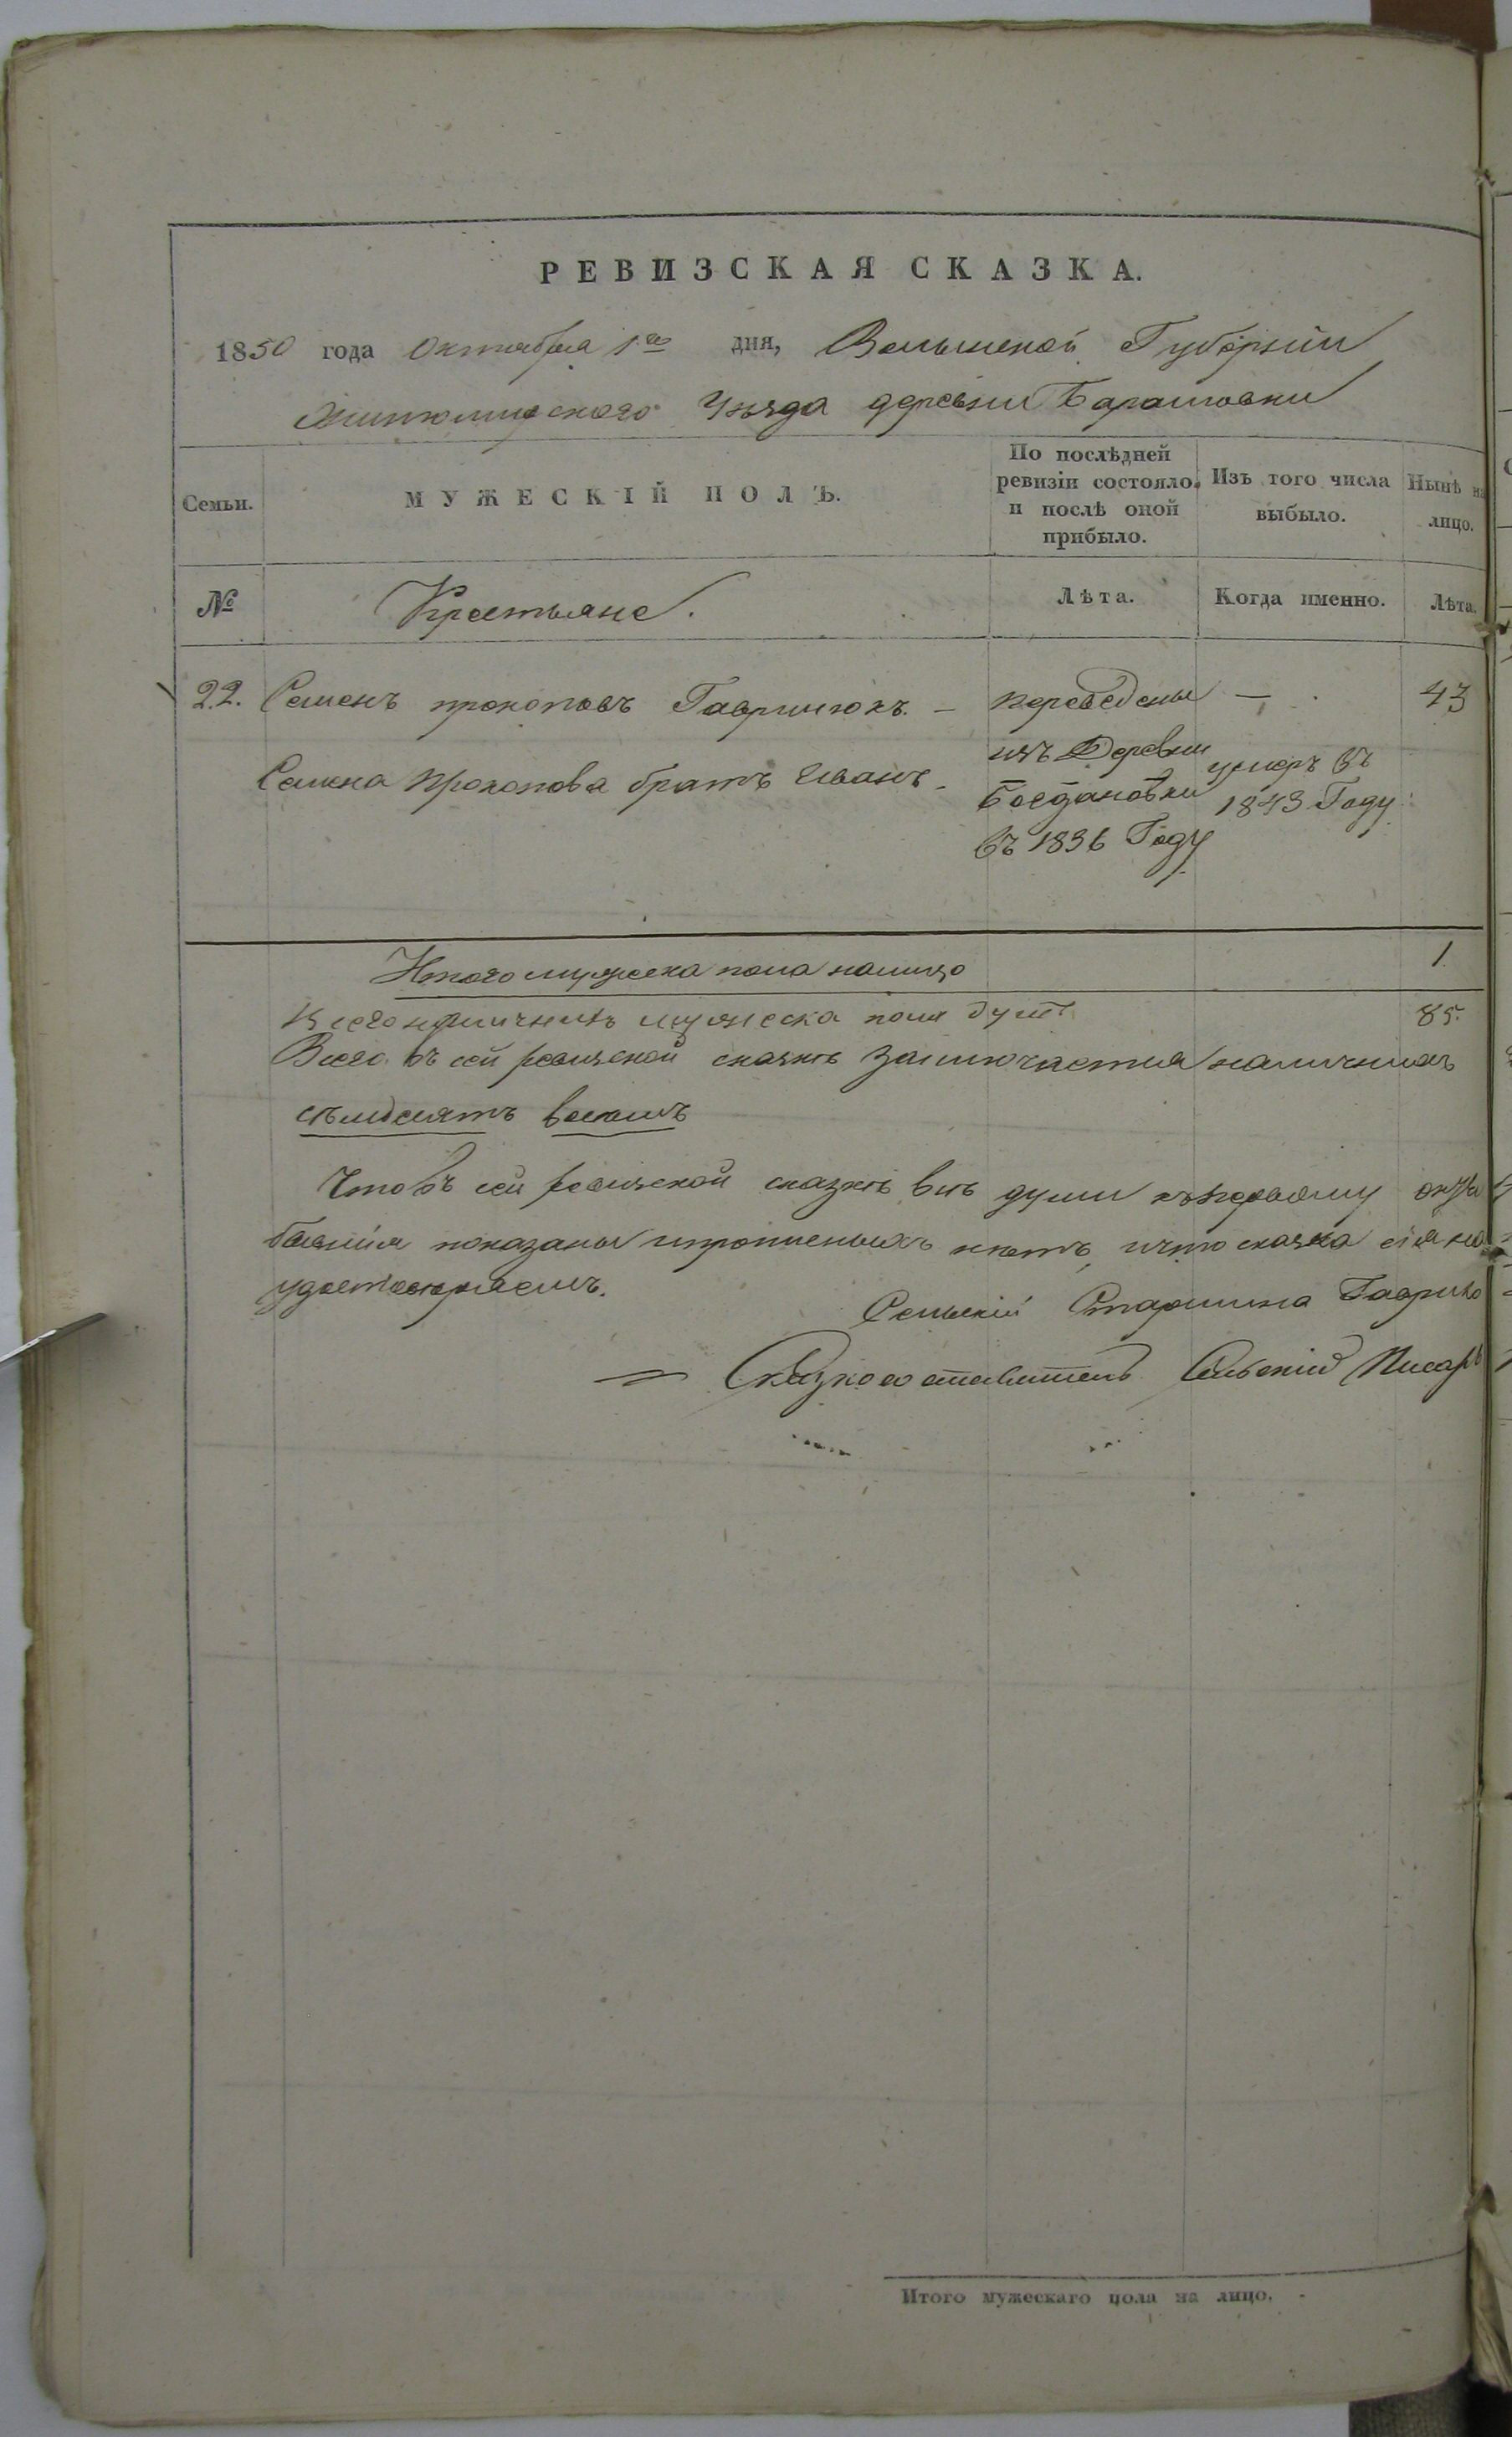 РЕВИЗСКАЯ СКАЗКА.
1850 года Октября 1го дня, Волынской Губернии
Житомирского Уѣзда деревни Барашовки
Семьи.
МУЖЕСКІЙ ПОЛЪ.
По послѣдней
ревизіи состояло
и послѣ оной
прибыло.
Изъ того числа
выбыло.
Нынѣ на
лицо.
№
Крестьяне.
Лѣта.
Когда именно.
Лѣта.
22. Семенъ прокоповъ Гаврилюкъ. – переведены – 43
изъ Деревни
Семена Прокопова братъ Иванъ – Богдановки
въ 1836 Году
умеръ въ
1843 Году
Итого мужеска пола налицо 1.
Всего наличныхъ мужеска пола душъ 85.
Всего въ сей ревизской сказкѣ заключается наличныхъ
восемь
Что въ сей ревизской сказкѣ всѣ души къ первому
показаны и нѣтъ, и что сказка сія
удостовѣряемъ.
Сельскій Старшина
= Сказкосоставитель Сельскій Писарь
Итого мужескаго пола на лицо.